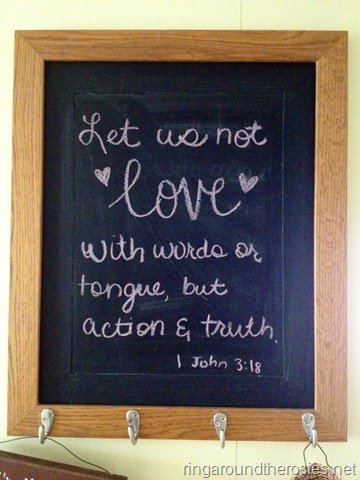 Let us not
love
with words or
tongue, but
action & truth.
1 John 3:18
ringaroundtherosies.net